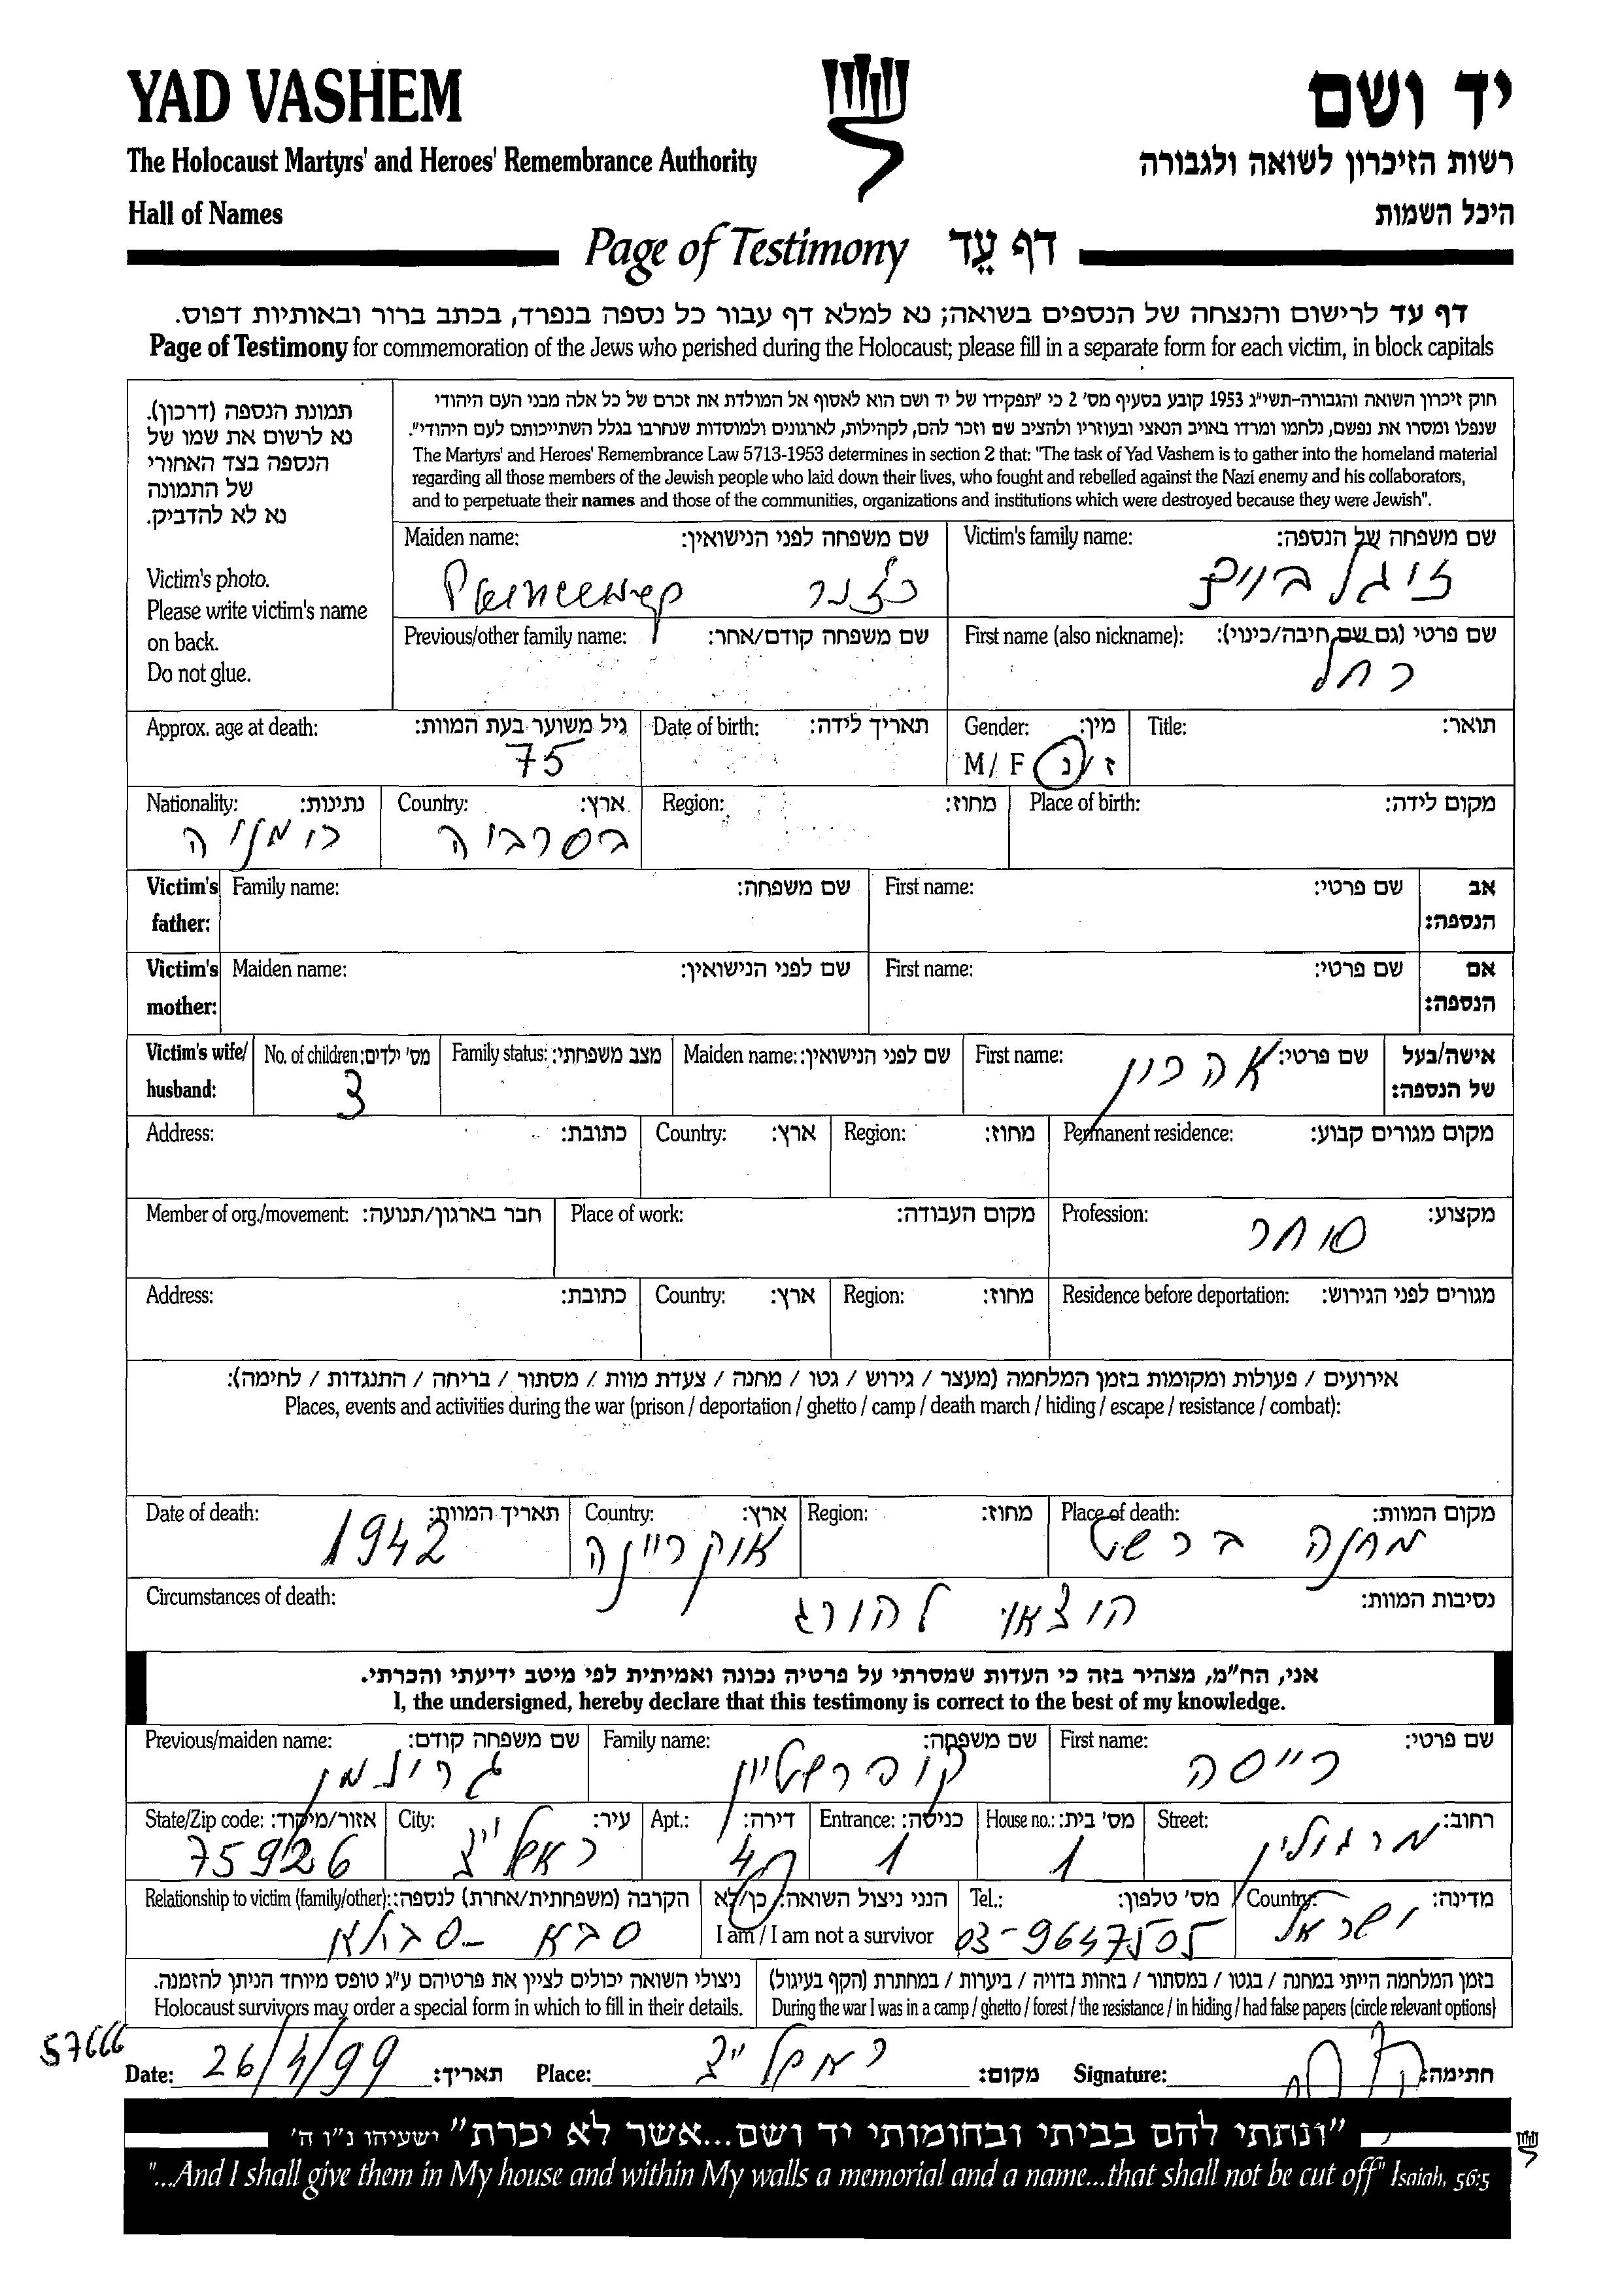 YAD VASHEM יד ושם
The Holocaust Martyrs' and Heroes' Remembrance Authority רשות הזיכרון לשואה ולגבורה
Hall of Names היכל השמות
Page of Testimony דף עֵד
דף עד לרישום והנצחה של הנספים בשואה; נא למלא דף עבור כל נספה בנפרד, בכתב ברור ובאותיות דפוס.
Page of Testimony for commemoration of the Jews who perished during the Holocaust; please fill in a separate form for each victim, in block capitals
תמונת הנספה (דרכון).
נא לרשום את שמו של
הנספה בצד האחורי
של התמונה
נא לא להדביק.
Victim's photo.
Please write victim's name
on back.
Do not glue.
חוק זיכרון השואה והגבורה-תשי"ג 1953 קובע בסעיף מס' 2 כי "תפקידו של יד ושם הוא לאסוף אל המולדת את זכרם של כל אלה מבני העם היהודי
שנפלו ומסרו את נפשם, נלחמו ומרדו באויב הנאצי ובעוזריו ולהציב שם וזכר להם, לקהילות, לארגונים ולמוסדות שנחרבו בגלל השתייכותם לעם היהודי".
The Martyrs' and Heroes' Remembrance Law 5713-1953 determines in section 2 that: "The task of Yad Vashem is to gather into the homeland material
regarding all those members of the Jewish people who laid down their lives, who fought and rebelled against the Nazi enemy and his collaborators,
and to perpetuate their names and those of the communities, organizations and institutions which were destroyed because they were Jewish".
Victim's family name: שם משפחה של הנספה: Maiden name: שם משפחה לפני הנישואין:
זיגלבוים
First name (also nickname): שם פרטי (גם שם חיבה/כינוי): Previous/other family name: שם משפחה קודם/אחר:
רחל
Title: תואר: Gender: מין: Date of birth: תאריך לידה: Approx. age at death: גיל משוער בעת המוות:
M/ F ז/נ 75
Place of birth: מקום לידה: Region: מחוז: Country: ארץ: Nationality: נתינות:
בסרביה רומניה
Victim's father: אב הנספה: First name: שם פרטי: Family name: שם משפחה:
Victim's mother: אם הנספה: First name: שם פרטי: Maiden name: שם לפני הנישואין:
Victim's wife/ husband: אישה/בעל של הנספה: First name: שם פרטי: Maiden name: שם לפני הנישואין: Family status: מצב משפחתי: No. of children: מס' ילדים:
אהרון 3
Permanent residence: מקום מגורים קבוע: Region: מחוז: Country: ארץ: Address: כתובת:
Profession: מקצוע: Place of work: מקום העבודה: Member of org./movement: חבר בארגון/תנועה:
סוחר
Residence before deportation: מגורים לפני הגירוש: Region: מחוז: Country: ארץ: Address: כתובת:
אירועים / פעולות ומקומות בזמן המלחמה (מעצר / גירוש / גטו / מחנה / צעדת מוות / מסתור / בריחה / התנגדות / לחימה):
Places, events and activities during the war (prison / deportation / ghetto / camp / death march / hiding / escape / resistance / combat):
Place of death: מקום המוות: Region: מחוז: Country: ארץ: Date of death: תאריך המוות:
מחנה ברשט אוקריינה 1942
Circumstances of death: נסיבות המוות:
הוצאו להורג
אני, הח"מ, מצהיר בזה כי העדות שמסרתי על פרטיה נכונה ואמיתית לפי מיטב ידיעתי והכרתי.
I, the undersigned, hereby declare that this testimony is correct to the best of my knowledge.
First name: שם פרטי: Family name: שם משפחה: Previous/maiden name: שם משפחה קודם:
רייסה קופרשטיין
Street: רחוב: House no.: מס' בית: Entrance: כניסה: Apt.: דירה: City: עיר: State/Zip code: אזור/מיקוד:
מרגולין 1 1 ראשל"צ 75926
Country: מדינה: Tel.: מס' טלפון: הנני ניצול השואה: כן/לא Relationship to victim (family/other): הקרבה (משפחתית/אחרת) לנספה:
ישראל 03-9647505 I am / I am not a survivor סבא - סבתא
בזמן המלחמה הייתי במחנה / בגטו / במסתור / בזהות בדויה / ביערות / במחתרת (הקף בעיגול) ניצולי השואה יכולים לציין את פרטיהם ע"ג טופס מיוחד הניתן להזמנה.
During the war I was in a camp / ghetto / forest / the resistance / in hiding / had false papers (circle relevant options) Holocaust survivors may order a special form in which to fill in their details.
57666
Date: 26/4/99 תאריך: Place: ראשל"צ מקום: Signature: חתימה:
"ונתתי להם בביתי ובחומותי יד ושם...אשר לא יכרת" ישעיהו נ"ו ה'
"...And I shall give them in My house and within My walls a memorial and a name...that shall not be cut off" Isaiah, 56:5